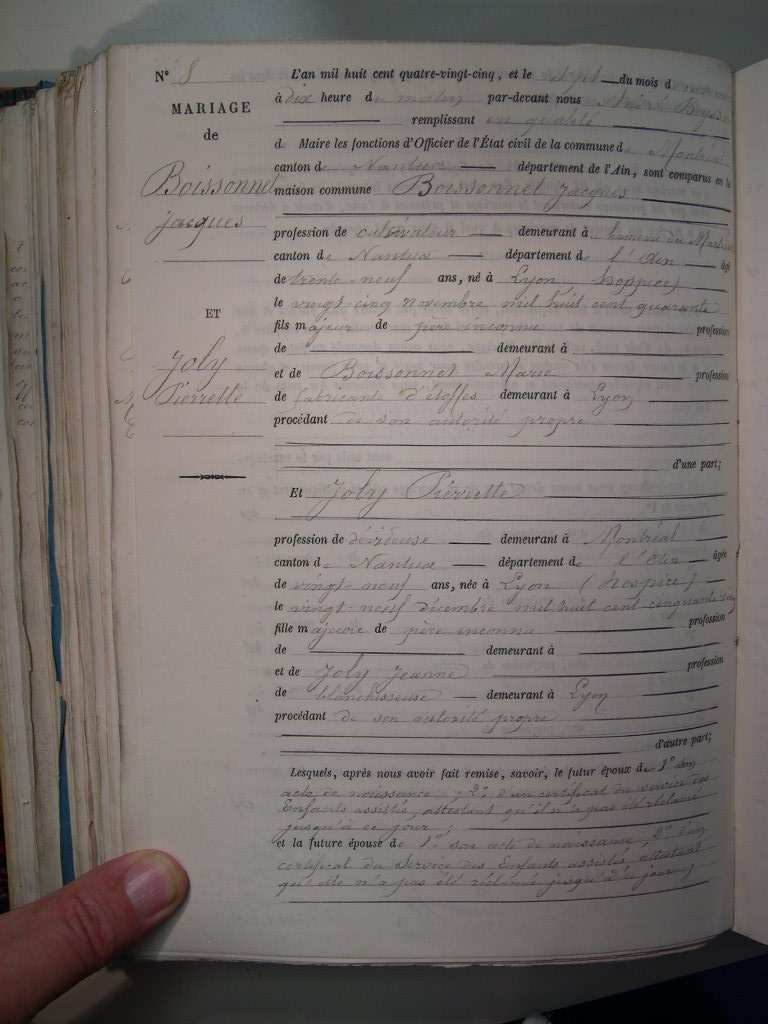 N° 8
MARIAGE
de
Boissonnet
Jacques
ET
Joly
Pierrette
L'an mil huit cent quatre-vingt-cinq, et le du mois d
à dix heure du matin par-devant nous
remplissant en qualité
d Maire les fonctions d'Officier de l'État civil de la commune de Montréal
canton de Nantua département de l'Ain, sont comparus en la
maison commune Boissonnet Jacques
profession de cultivateur demeurant à hameau du
canton de Nantua département de l'Ain âgé
de trente neuf ans, né à Lyon (hospice)
le vingt-cinq novembre mil huit cent quarante
fils majeur de père inconnu profession
de demeurant à
et de Boissonnet Marie profession
de fabricante d'étoffes demeurant à Lyon
procédant de son autorité propre
d'une part;
Et Joly Pierrette
profession de dévideuse demeurant à Montréal
canton de Nantua département de l'Ain âgée
de vingt-neuf ans, née à Lyon (hospice)
le vingt-neuf décembre mil huit cent cinquante
fille majeure de père inconnu profession
de demeurant à
et de Joly Jeanne profession
de blanchisseuse demeurant à Lyon
procédant de son autorité propre
d'autre part;
Lesquels, après nous avoir fait remise, savoir, le futur époux de 1° son
acte de naissance; 2° d'un certificat du service des
Enfants assistés, attestant qu'il n'a pas été réclamé
jusqu'à ce jour;
et la future épouse de 1° son acte de naissance; 2° d'un
certificat du Service des Enfants assistés, attestant
qu'elle n'a pas été réclamée jusqu'à ce jour;